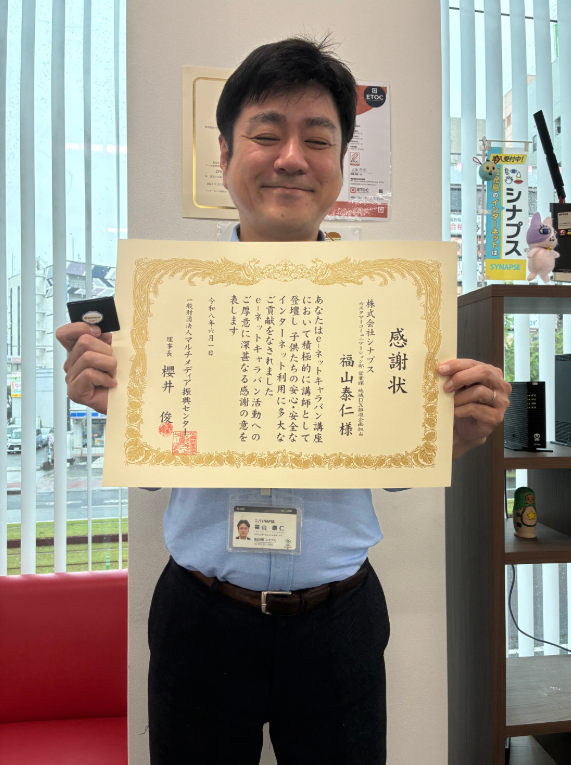 感謝状
株式会社シナプス
福山泰仁様
あなたはe-ネットキャラバン講座
において積極的に講師として
登壇し子供たちの安心・安全な
インターネット利用に多大な
ご貢献をなされました
e-ネットキャラバン活動への
ご厚意に深甚なる感謝の意を
表します
令和八年六月一日
一般財団法人マルチメディア振興センター
理事長 櫻井 俊
ETOC
受付中!
シナプス
SYNAPSE
福山 泰仁